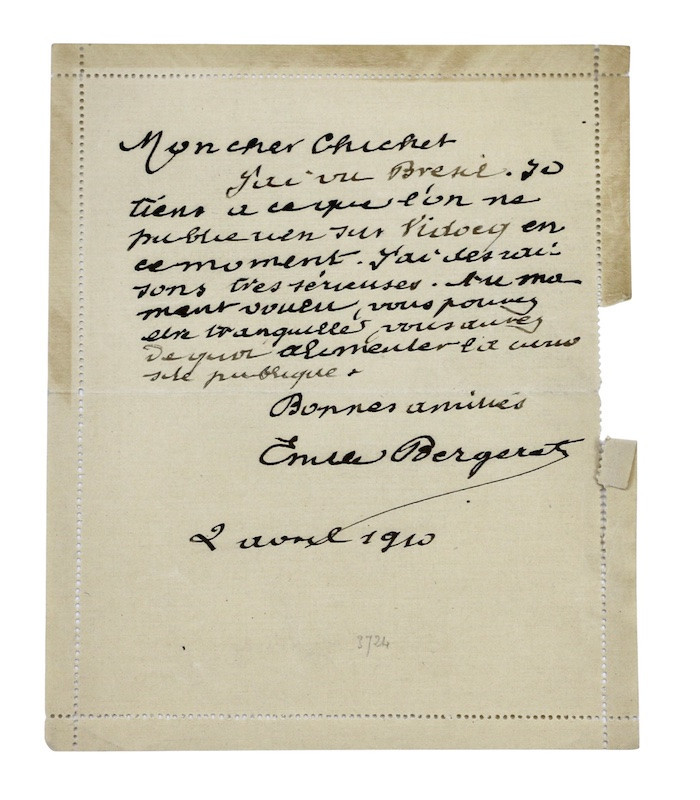 Mon cher Chichet
J'ai vu Bresil. Je
tiens à ce que l'on ne
publie rien sur Vidocq en
ce moment. J'ai des rai-
sons très sérieuses. Au mo
ment voulu, vous pouvez
etre tranquille, vous aurez
de quoi alimenter la curio
sité publique.
Bonnes amitiés
Emile Bergerat
2 avril 1910
3724